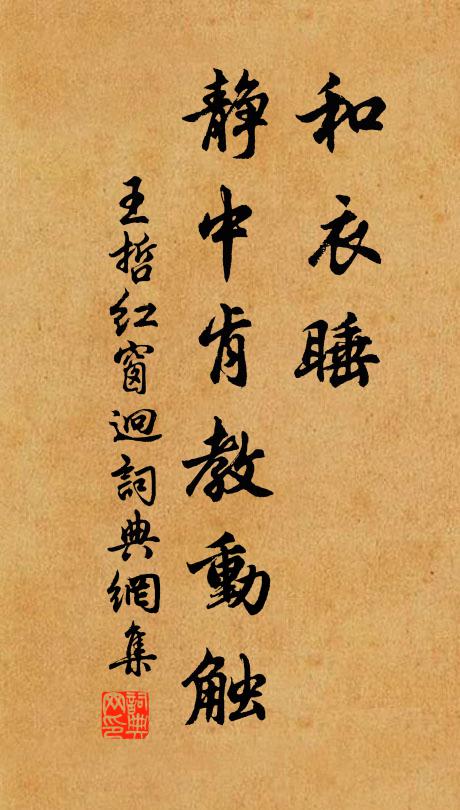 和衣睡
静中肯教動触
王哲红窗迥詞典網集
詞典网印